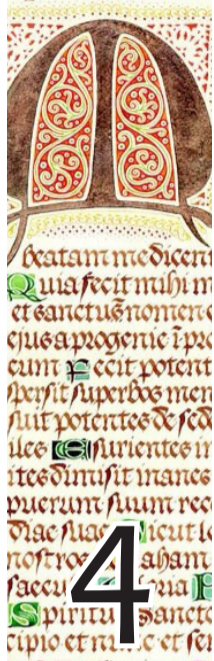 M
beatam me dicent
Quia fecit mihi m
et sanctū nomen e
ejus a progenie ī pro
eum Fecit potent
spersit superbos men
suit potentes de sed
les Esurientes i
ites dimisit inanes
puerum suum rec
diae suae icut l
nostros aham
saecu ria
Spiritu Sanct
cipio et nu c et sem
4